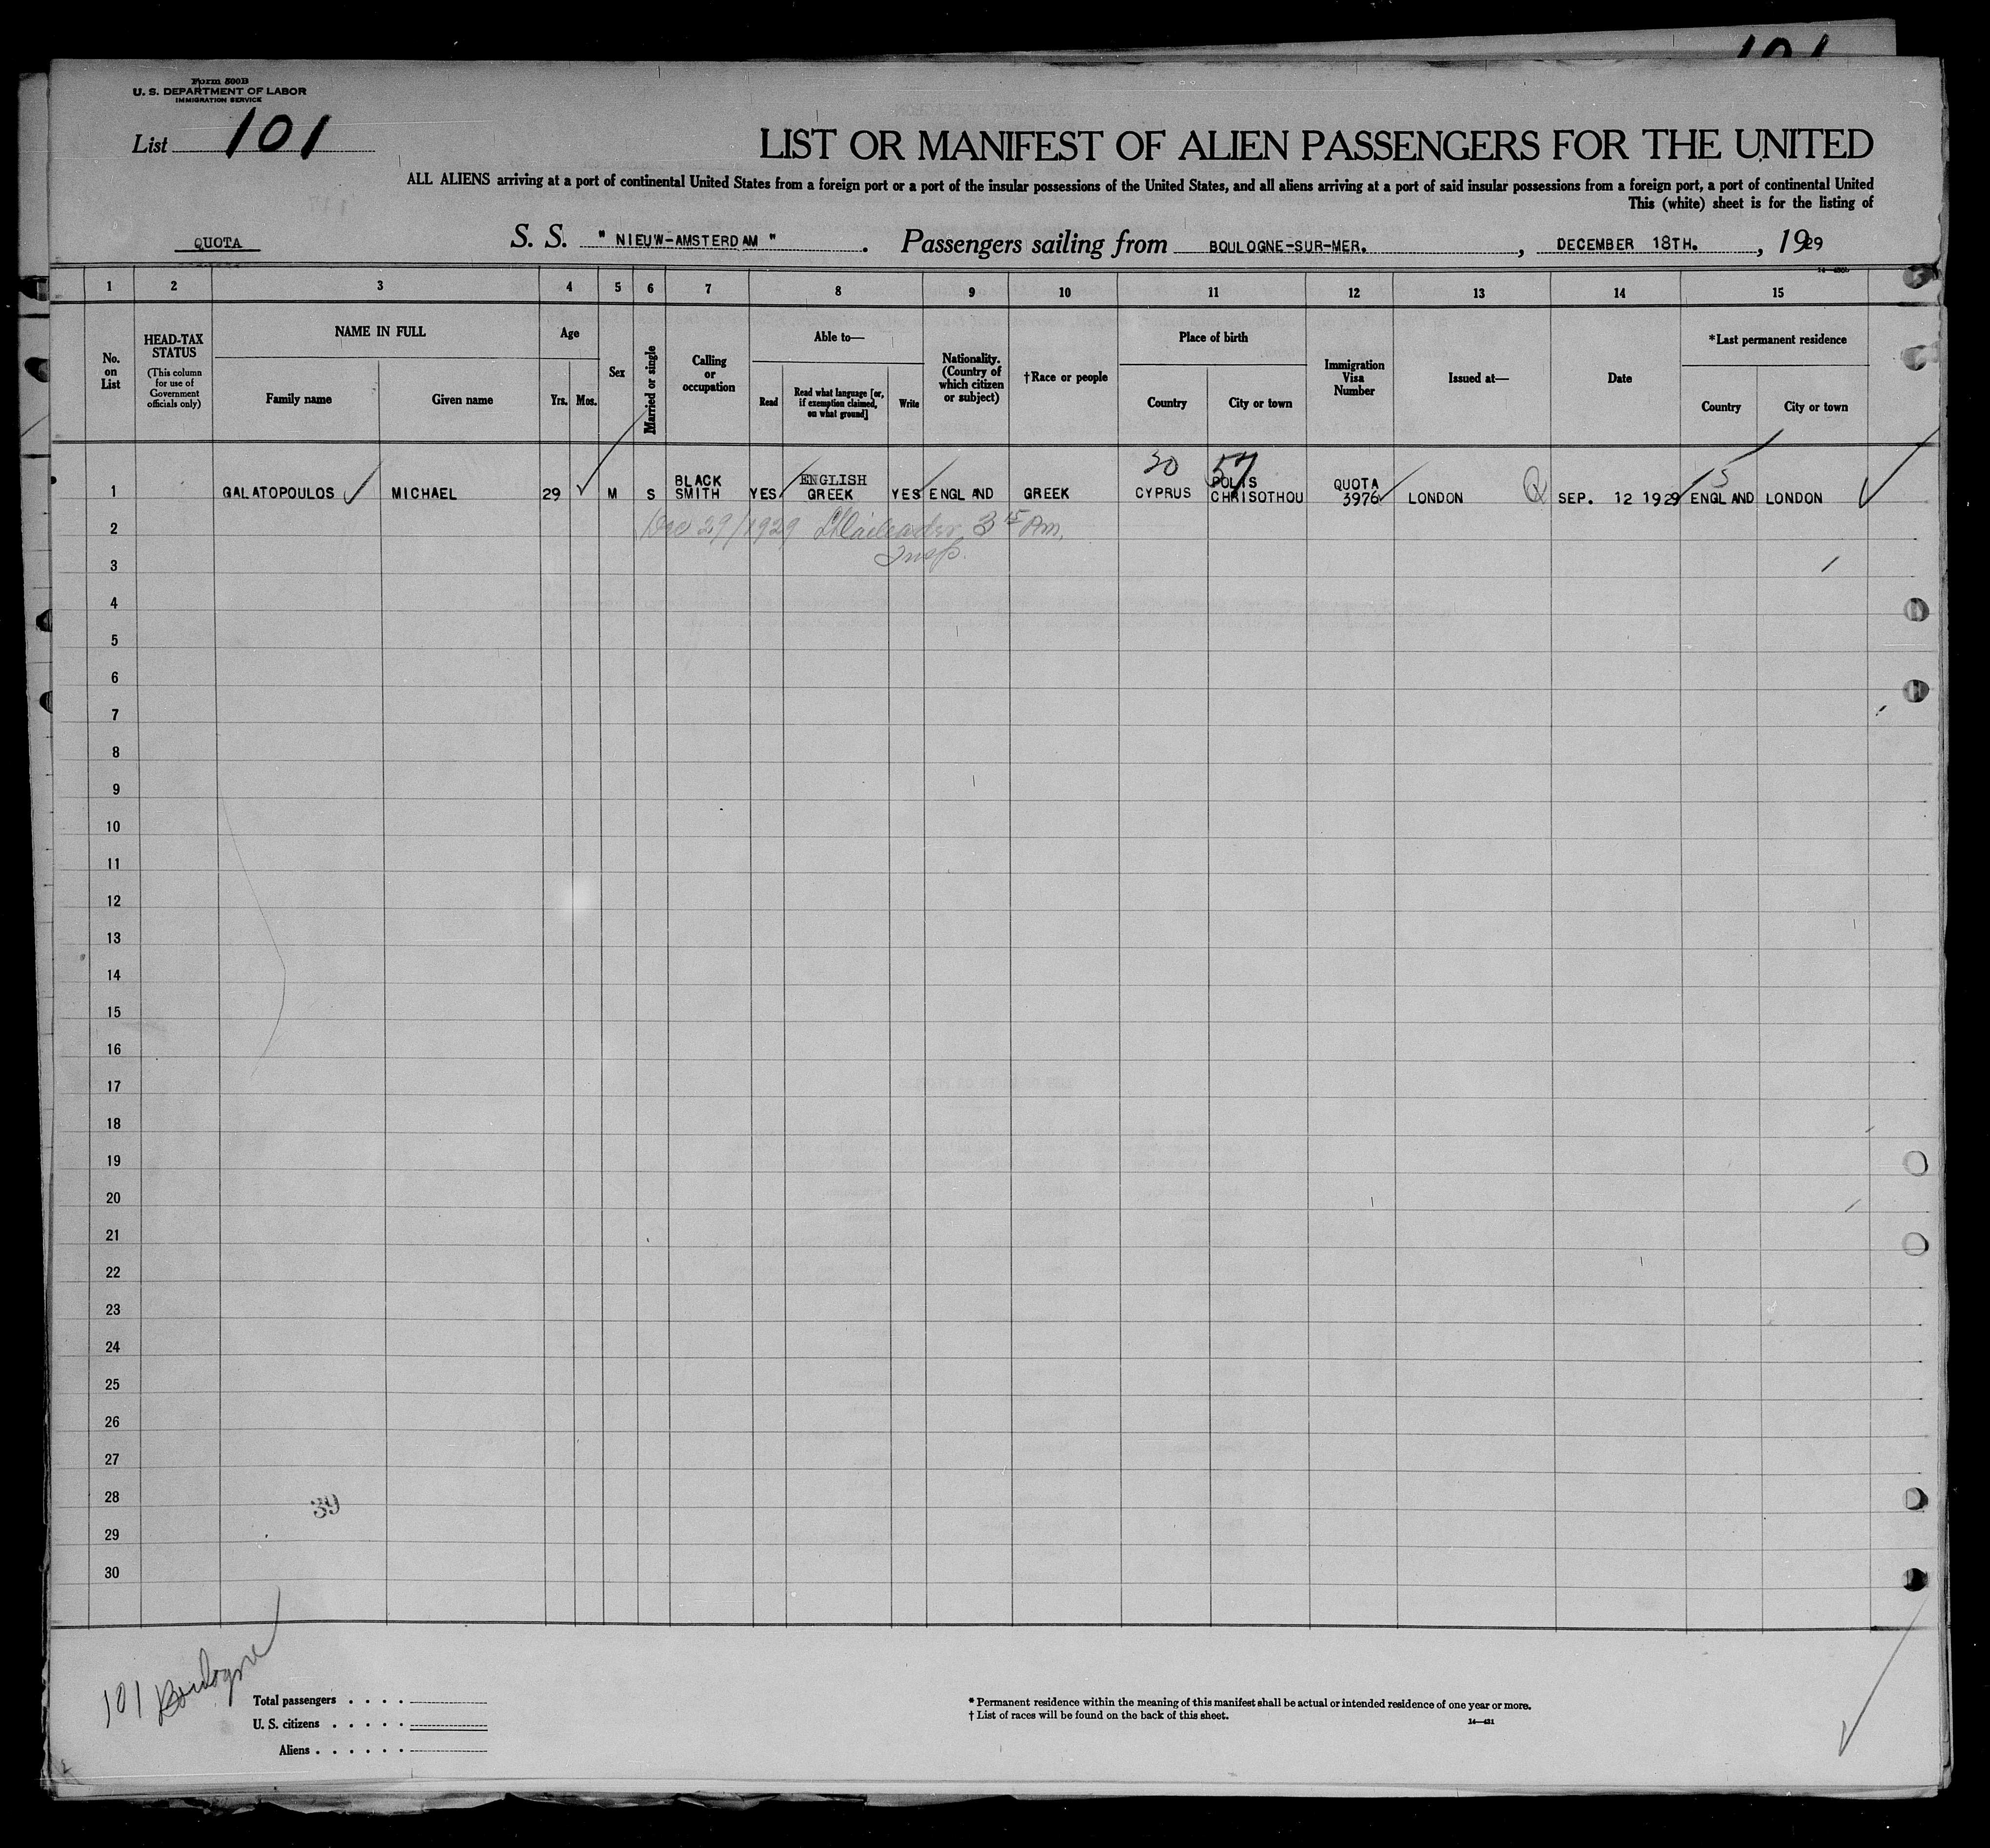 101
Form 500B
U. S. DEPARTMENT OF LABOR
IMMIGRATION SERVICE
List 101
LIST OR MANIFEST OF ALIEN PASSENGERS FOR THE UNITED
ALL ALIENS arriving at a port of continental United States from a foreign port or a port of the insular possessions of the United States, and all aliens arriving at a port of said insular possessions from a foreign port, a port of continental United
This (white) sheet is for the listing of
QUOTA S. S. " NIEUW-AMSTERDAM ". Passengers sailing from BOULOGNE-SUR-MER. , DECEMBER 18TH. , 1929
1 2 3 4 5 6 7 8 9 10 11 12 13 14 15
No. on List
HEAD-TAX STATUS
(This column for use of Government officials only)
NAME IN FULL
Family name Given name
Age
Yrs. Mos.
Sex
Married or single
Calling or occupation
Able to—
Read Read what language [or, if exemption claimed, on what ground] Write
Nationality. (Country of which citizen or subject)
†Race or people
Place of birth
Country City or town
Immigration Visa Number
Issued at—
Date
*Last permanent residence
Country City or town
30 57 5
1 GALATOPOULOS MICHAEL 29 M S BLACK SMITH YES ENGLISH GREEK YES ENGLAND GREEK CYPRUS POLIS CHRISOTHOU QUOTA 3976 LONDON Q SEP. 12 1929 ENGLAND LONDON
2 Dec 29/1929 3 15 Pm.
Insp.
3
4
5
6
7
8
9
10
11
12
13
14
15
16
17
18
19
20
21
22
23
24
25
26
27
28 39
29
30
101 Boulogne
Total passengers . . . .
U. S. citizens . . . . .
Aliens . . . . . .
* Permanent residence within the meaning of this manifest shall be actual or intended residence of one year or more.
† List of races will be found on the back of this sheet.
14—431